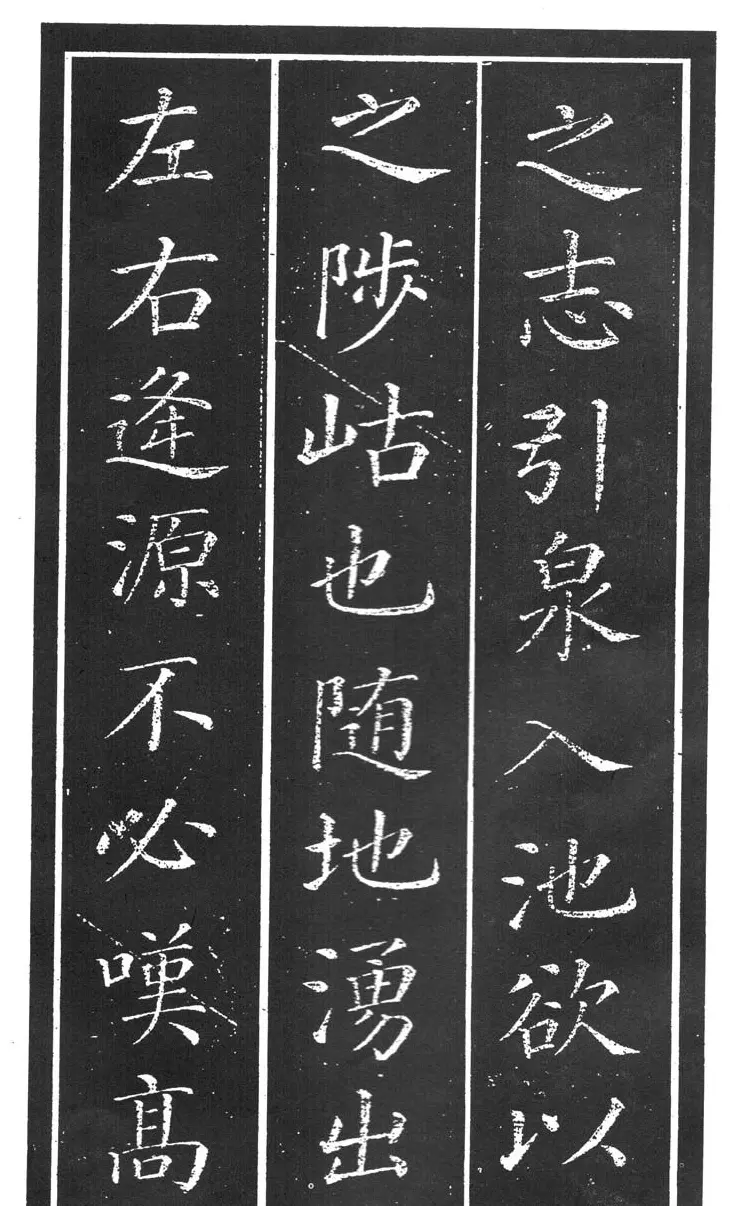 之志引泉入池欲以
之陟岵也随地湧出
左右逢源不必嘆高